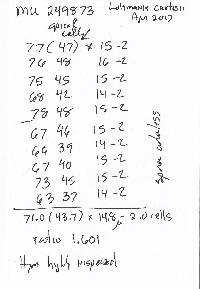 MU 249873
Lohmania curtisii
Apr 2017
spores cells
77 (47) x 15-2
76 48 16-2
75 45 15-2
68 42 14-2
78 48 15-2
67 46 15-2
66 39 14-2
67 40 15-2
73 45 15-2
63 37 14-2
71.0 (43.7) x 14.8 - 2.0 cells
ratio 1.601
Hym highly inspersed